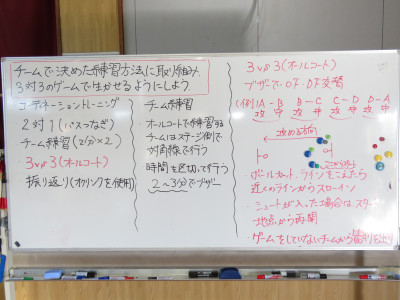 チームで決めた練習方法に取り組み、
3対3のゲームで生かせるようにしよう。
コーディネーショントレーニング
・2対1(パスつなぎ)
・チーム練習(2分×2)
・3vs3(オールコート)
・振り返り(オクリンクを使用)
チーム練習
オールコートで練習する
チームはステージ側で
対角線で行う
時間を区切って行う
2～3分でブザー
3vs3(オールコート)
ブザーでOF・DF交替
(例)A-B B-C C-D D-A
攻 中 攻 中 攻 中 攻 中
攻める方向
・ボールカット、ラインをこえたら
近くのラインからスローイン
・シュートが入った場合はスタート
地点から再開
・ゲームをしていないチームから